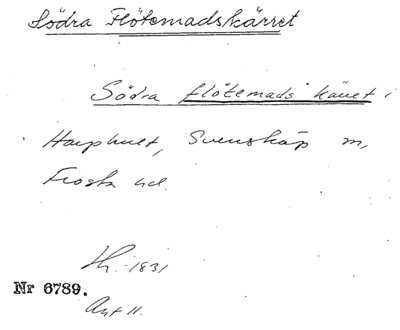 Södra Flötemadskärret
Södra flötemads käret i
Harphult, Svensköp m,
Frosta hd.
Lh. 1831
Nr 6789.
Akt 11.